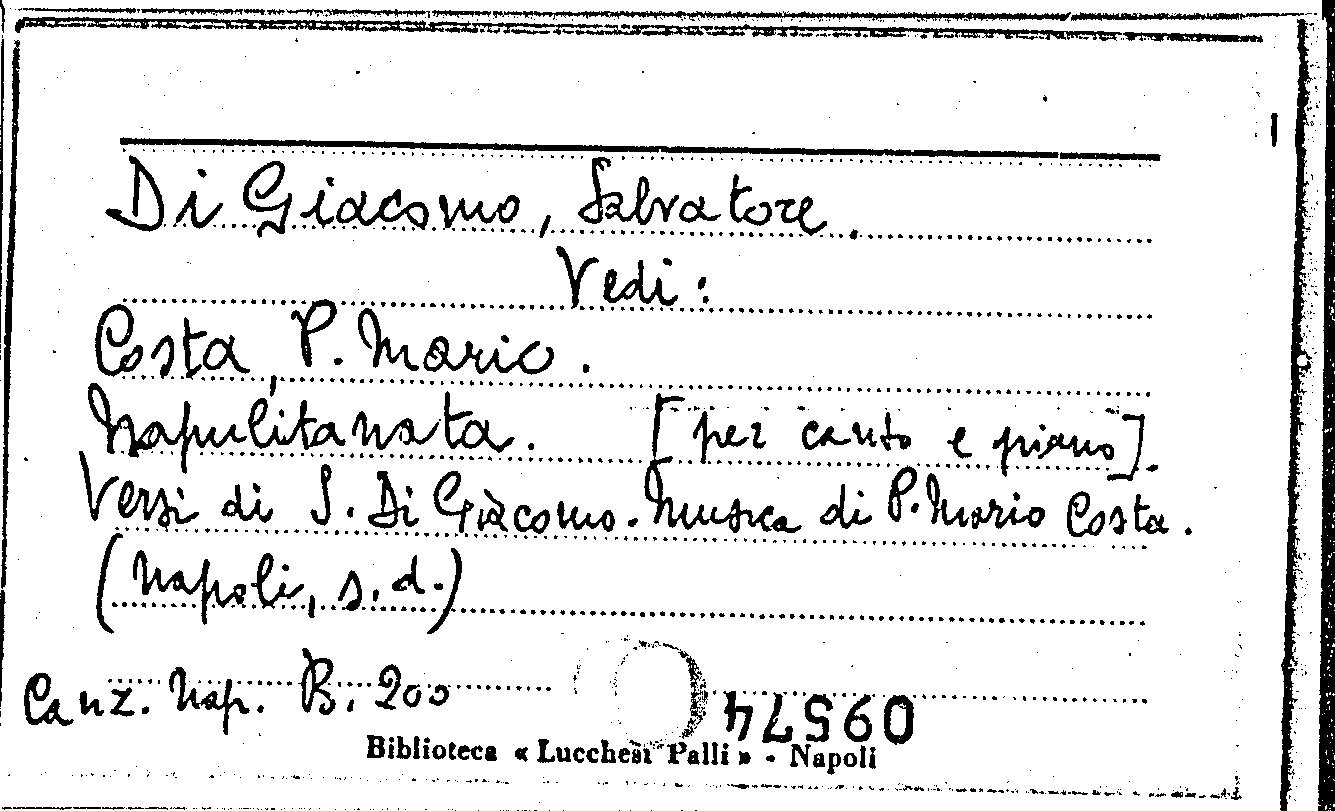 Di Giacomo, Salvatore.
Vedi:
Costa, P. Mario.
Napulitanata. [per canto e piano].
Versi di S. Di Giacomo. Musica di P. Mario Costa.
(Napoli, s.d.)
Canz. Nap. B. 200
09574
Biblioteca « Lucchesi Palli » - Napoli